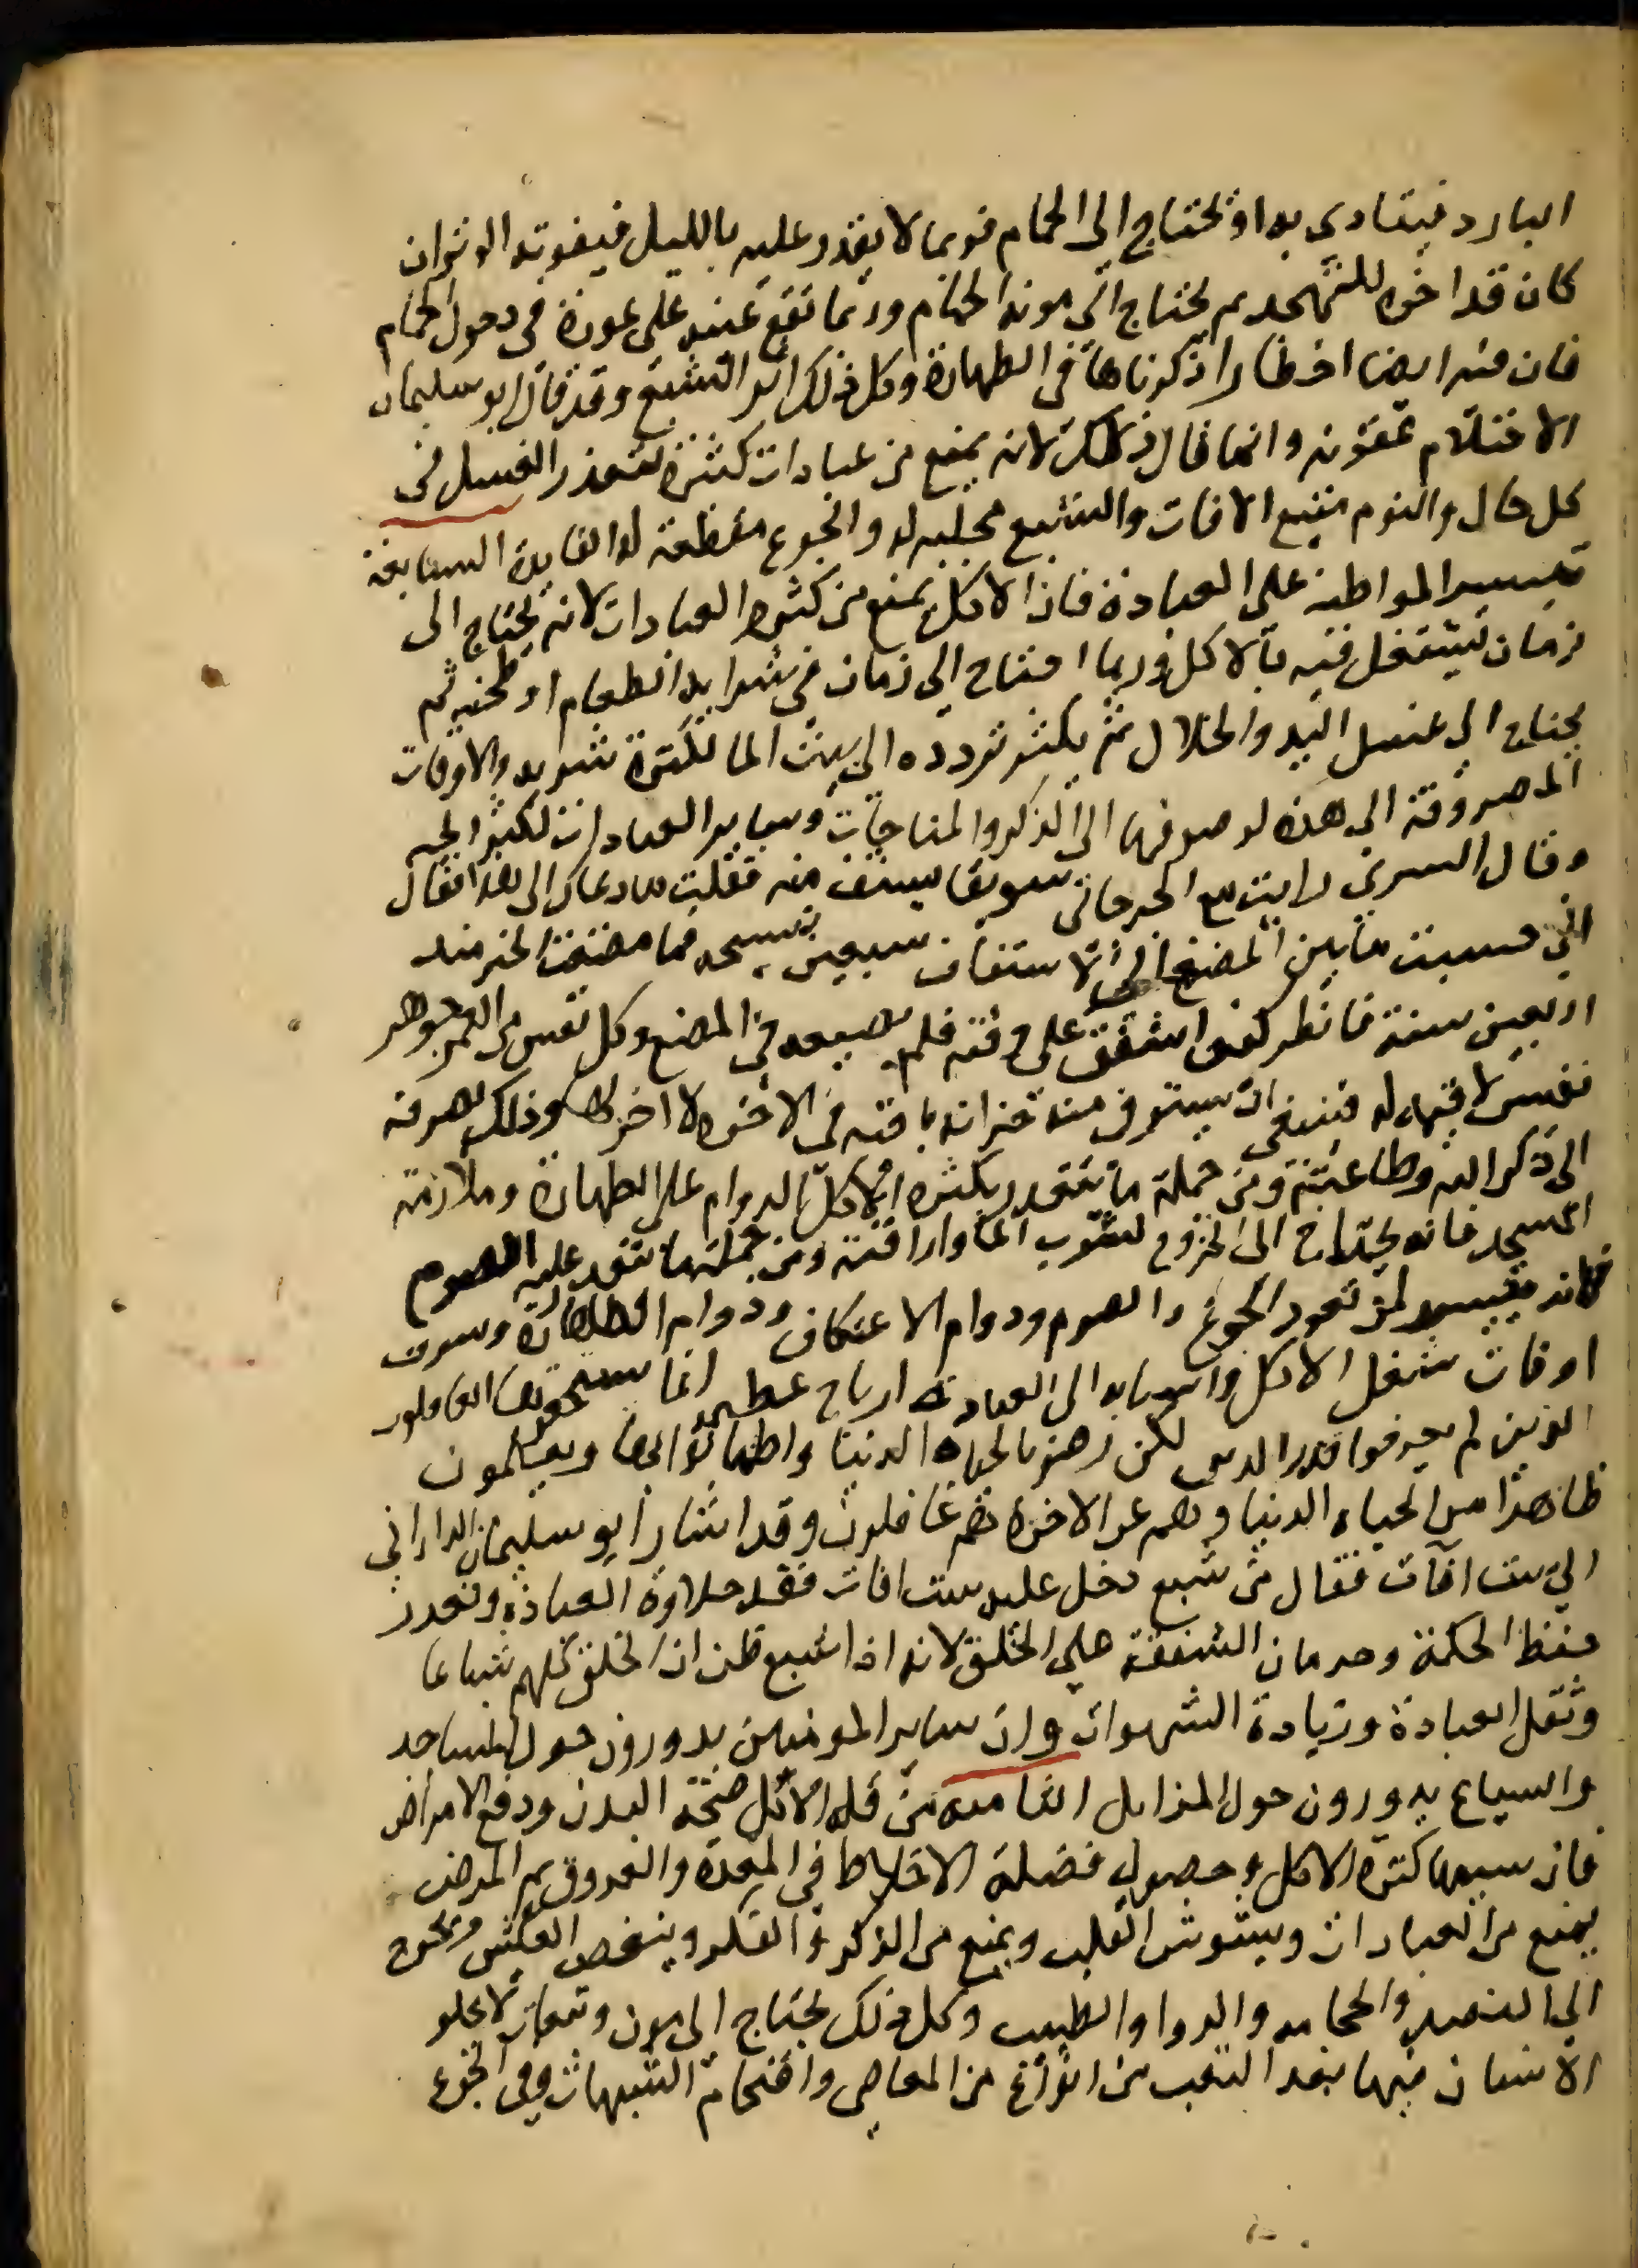 البارد فيتاذى به او يحتاج الى الحمام فربما لا يقدر عليه بالليل فيفوته الوتر ان
كان قد اخره للتهجد ثم يحتاج الى مونة الحمام وربما تقع عينه على عورة فى دخول الحمام
فان فيه ايضا اخطارا ذكرناها فى الطهارة وكل ذلك اثر الشبع وقد قال ابو سليمان
الاحتلام عقوبه وانما قال ذلك لانه يمنع من عبادات كثيرة لتعذر الغسل فى
كل حال والنوم منبع الافات والشبع مجلبه له والجوع مقطعة له الفايدة السابعة
تيسير المواظبة على العبادة فان الاكل يمنع من كثرة العبادات لانه يحتاج الى
زمان يشتغل فيه بالاكل وربما احتاج الى زمان فى شرا به الطعام او طحنه ثم
يحتاج الى غسل اليد والخلال ثم يكثر تردده الى بيت الما لكثرة شربه والاوقات
المصروفة الى هذه لو صرفها الى الذكر والمناجات وساير العبادات لكثر ربحه
وقال السرى رايت مع الجرجانى سويقا يستف منه فقلت ما دعاك الى هذا فقال
انى حسبت ما بين المضغ الى الاستفاف سبعين تسبيحه فما مضغت الخبز منذ
اربعين سنة فانظر كيف اشفق على وقته فلم يضيعه فى المضغ وكل نفس من العمر جوهر
نفيس لا قيمة له فينبغى ان يستوفى منه خزانه باقيه فى الاخره لا اخر لها وذلك بصرفه
الى ذكر الله وطاعته ومن جملة ما يتعذر بكثرة الاكل الدوام على الطهارة وملازمة
المسجد فانه يحتاج الى الخروج لشرب الما واراقته ومن جملة ما يتعذر عليه الصوم
فانه متيسر لمن تعود الجوع والصوم ودوام الاعتكاف ودوام الطهارة وصرف
اوقات شغل الاكل واسبابه الى العبادة ارباح عظيمة انما يستحقرها الغافلون
الذين لم يعرفوا قدر الدين لكن رضوا بالحياه الدنيا واطمانوا بها ويعلمون
ظاهرا من الحياه الدنيا وهم عن الاخرة هم غافلون وقد اشار ابو سليمان الدارانى
الى ست افات فقال من شبع دخل عليه ست افات فقد حلاوة العبادة وتعذر
حفظ الحكمة وحرمان الشفقة على الخلق لانه اذا شبع ظن ان الخلق كلهم شباعا
وثقل العبادة وزيادة الشهوات وان ساير المومنين يدورون حول المساجد
والسباع يدورون حول المزابل الثامنه من قلة الاكل صحة البدن ودفع الامراض
فان سببها كثرة الاكل وحصول فضلة الاخلاط فى المعدة والعروق ثم المرض
يمنع من العبادات ويشوش القلب ويمنع من الذكر والفكر وينغص العيش ويحوج
الى الفصد والحجامه والدوا والطبيب وكل ذلك يحتاج الى مون وتبعات لا يخلو
الانسان فيها بعد التعب من انواع من المعاصى واقتحام الشبهات وفى الجوع